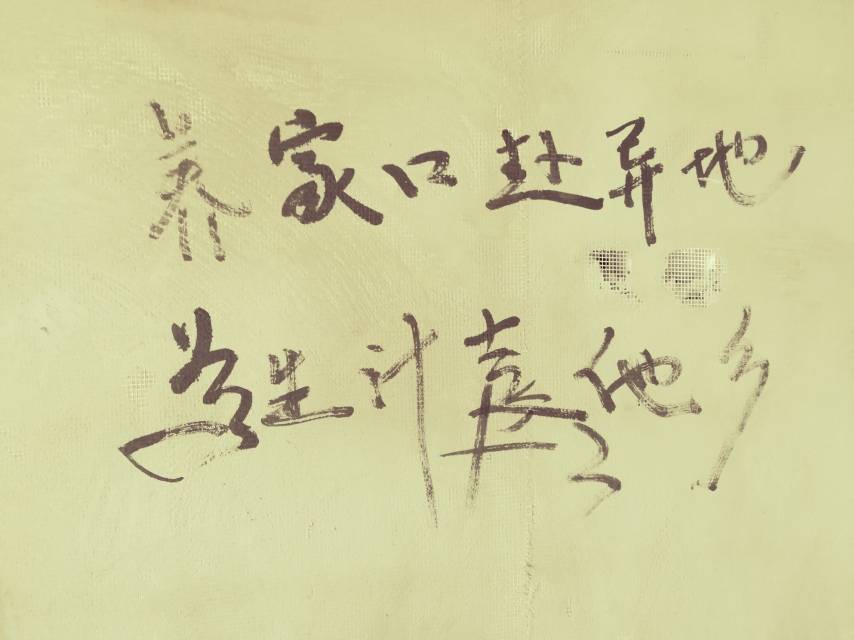 养家口赴异地
为生计他乡